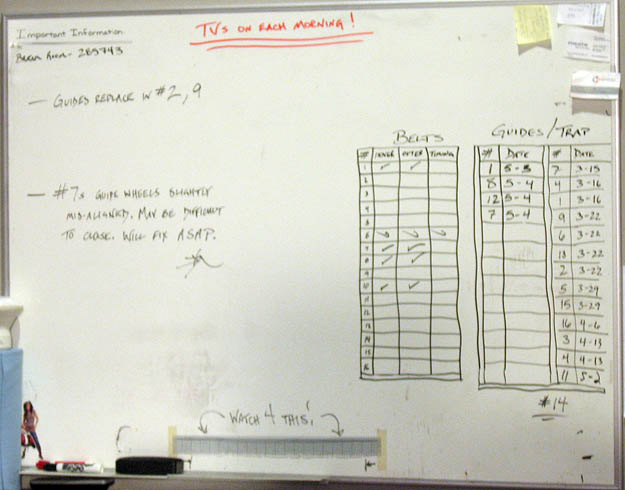 TVs ON EACH MORNING!
Important Information
Break Room - 285743
— GUIDES REPLACE IN #2, 9
— #7s GUIDE WHEELS SLIGHTLY
MIS-ALIGNED. MAY BE DIFFICULT
TO CLOSE. WILL FIX ASAP.
BELTS
# INNER OUTER TIMING
1 ✓ ✓
2
3
4
5
6
7 ✓ ✓
8 ✓ ✓
9
10 ✓ ✓
11
12
13
14
15
16
GUIDES/TRAP
# DATE # DATE
1 5-3 7 3-15
8 5-4 4 3-16
12 5-4 1 3-16
7 5-4 9 3-22
6 3-22
13 3-22
2 3-22
5 3-29
15 3-29
16 4-6
3 4-13
4 4-13
11 5-2
#14
WATCH 4 THIS!
EXPO